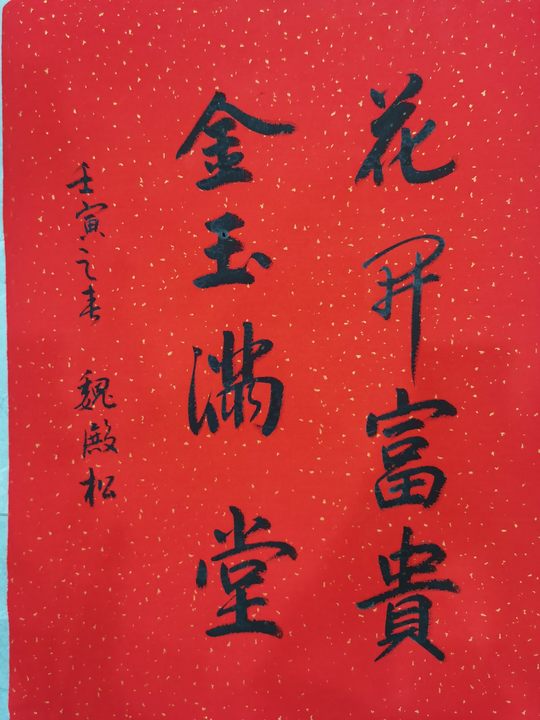 花开富貴
金玉满堂
壬寅之春 魏殿松